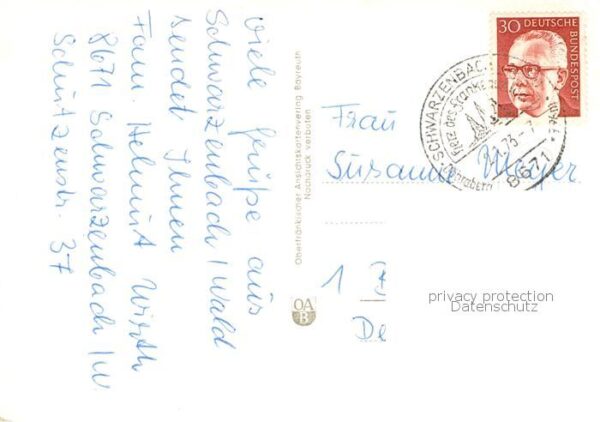 Viele Grüße aus
Schwarzenbach/Wald
sendet Ihnen
Fam. Helmut Wirth
8671 Schwarzenbach/W
Schützenstr. 37
Oberfränkischer Ansichtskartenverlag Bayreuth
Nachdruck verboten
OA
B
30 DEUTSCHE
BUNDESPOST
SCHWARZENBACH
Herz des Frankenwaldes
73
8671
Frau
Susanne Mayer
1 B
De
privacy protection
Datenschutz